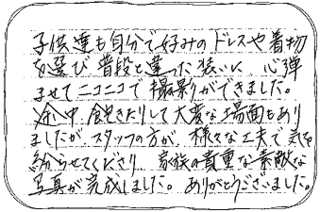 子供達も自分で好みのドレスや着物
を選び普段と違った装いに、心弾
ませてニコニコで撮影ができました。
途中、飽きたりして大変な場面もあり
ましたが、スタッフの方が、様々な工夫で気を
紛らせてくださり、家族の貴重な素敵な
写真が完成しました。ありがとうございました。